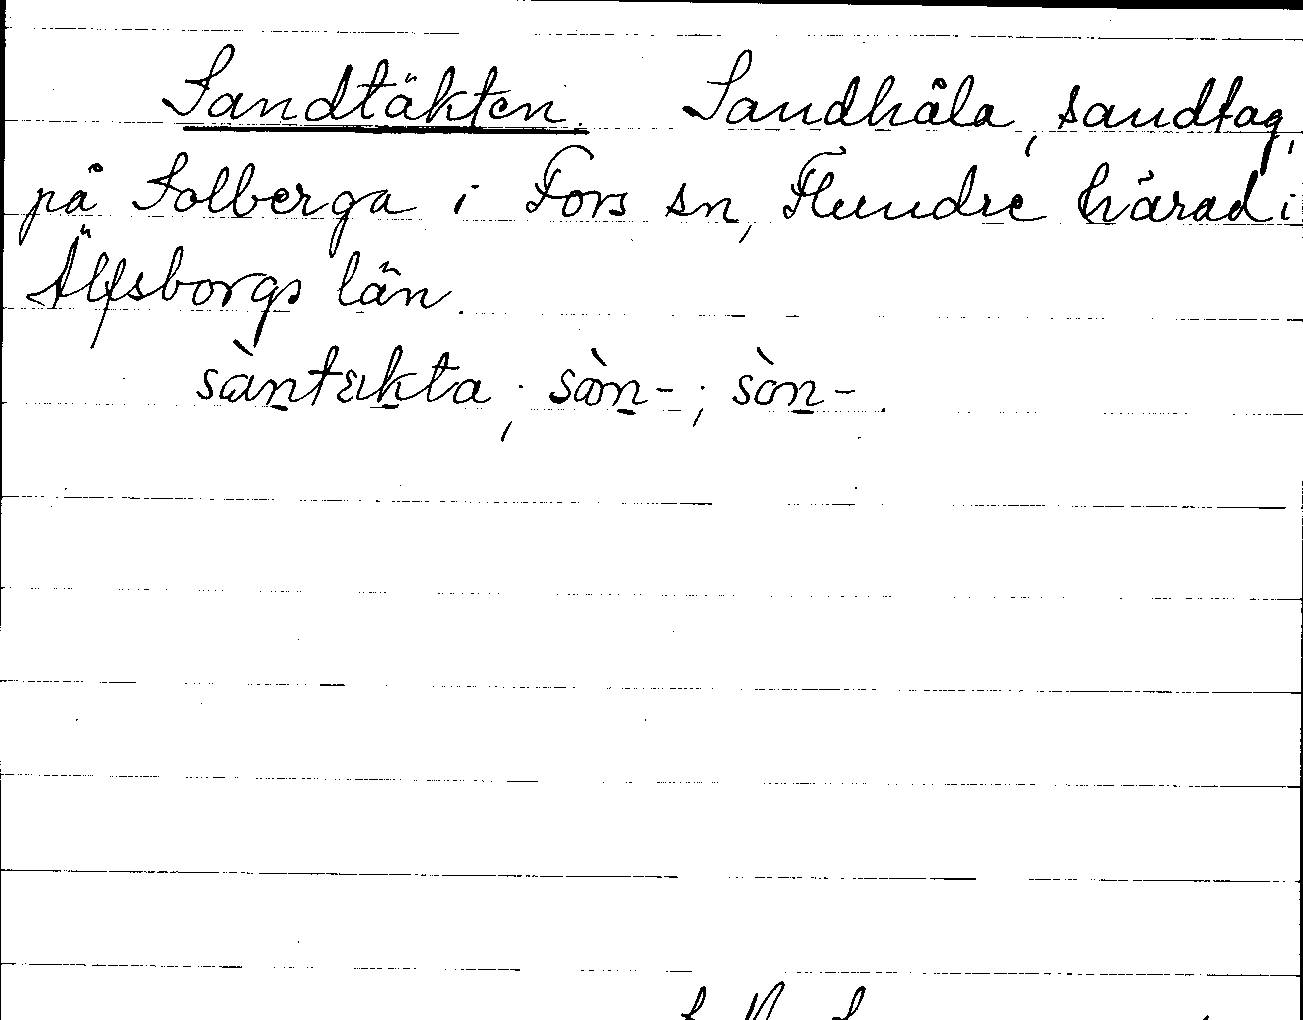 Sandtäkten. Sandhåla, sandtag,
på Solberga i Fors sn, Flundre härad i
Älfsborgs län.
sàntækta; sòn-; sòn-.